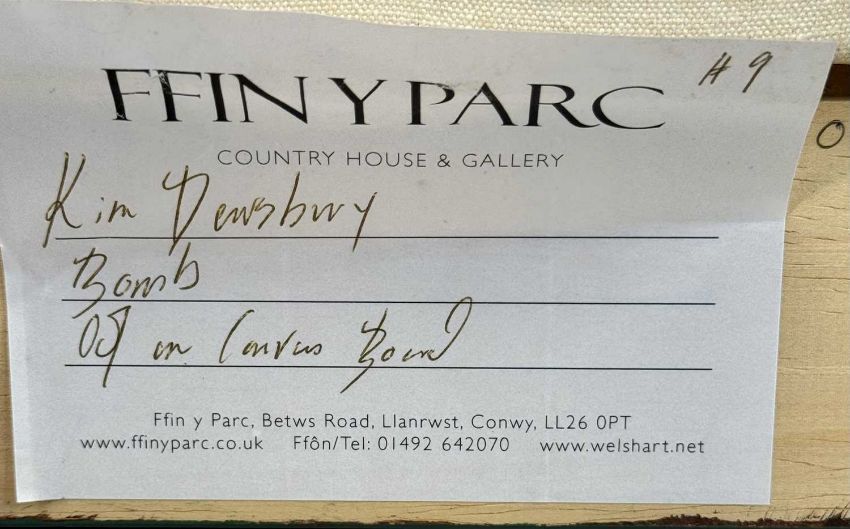 # 9
FFIN Y PARC
COUNTRY HOUSE & GALLERY
Kim Dewsbury
Bomb
Oil on Canvas Board
Ffin y Parc, Betws Road, Llanrwst, Conwy, LL26 0PT
www.ffinyparc.co.uk Ffôn/Tel: 01492 642070 www.welshart.net